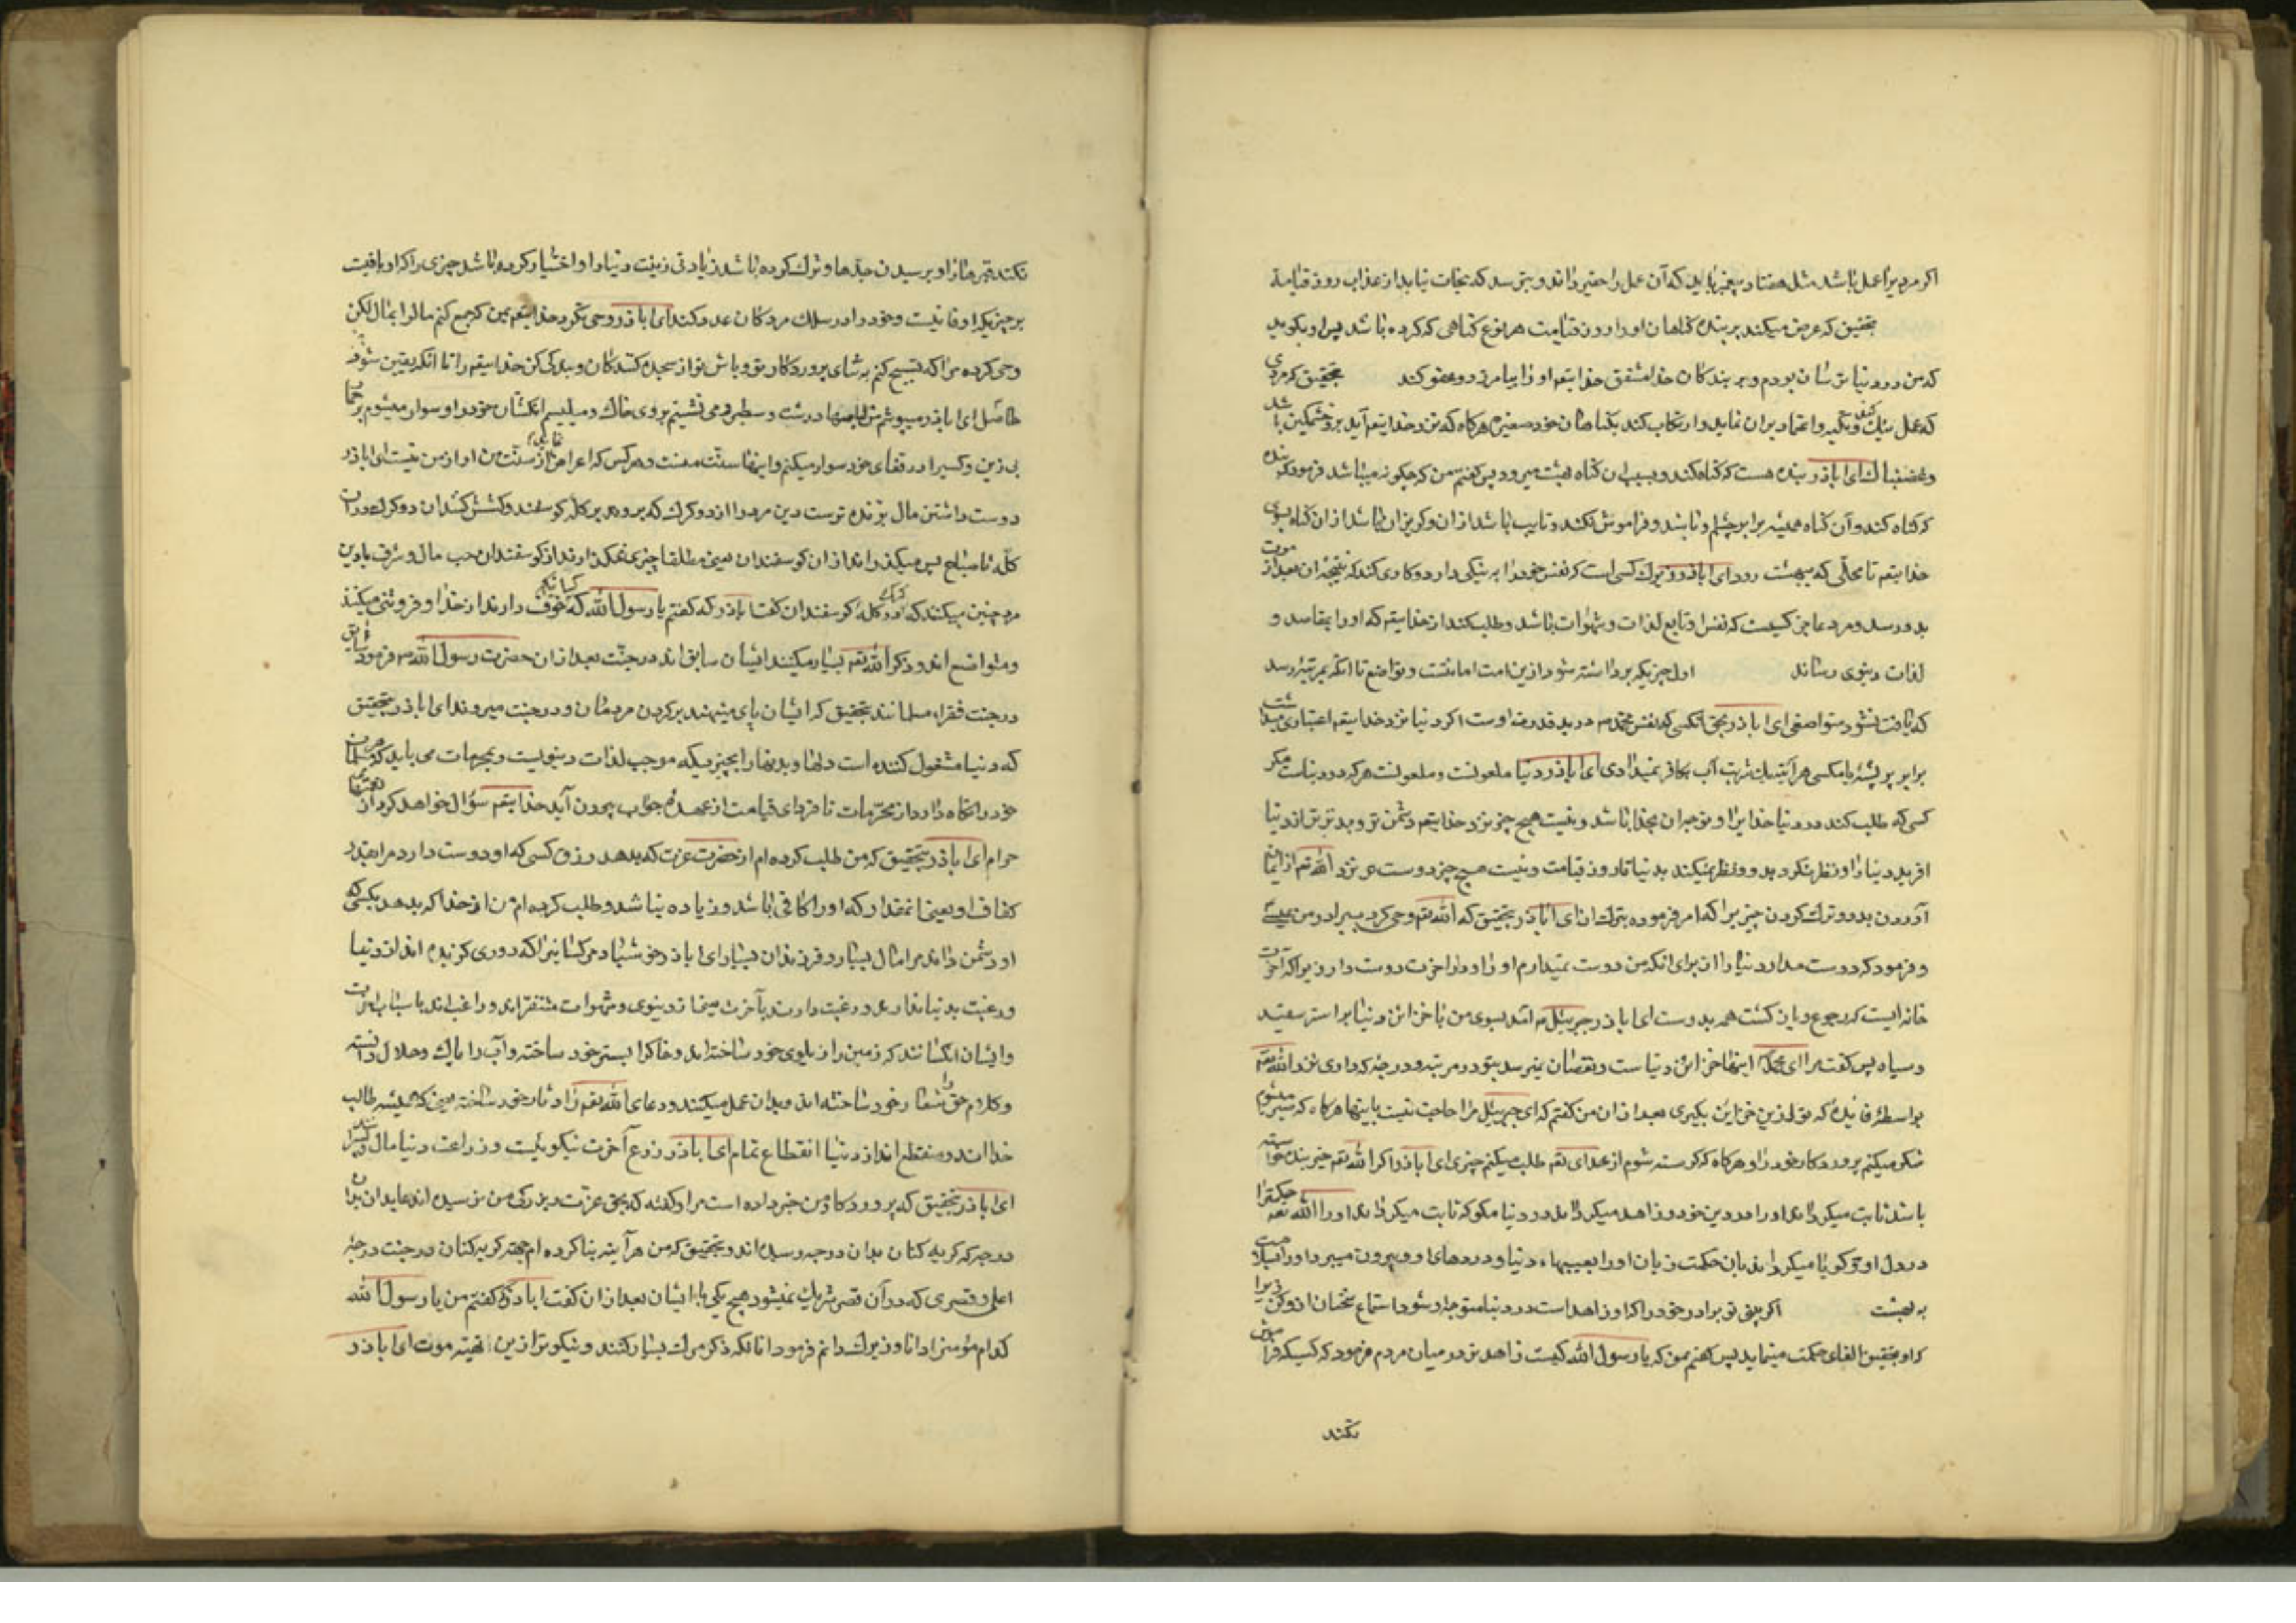 اکر مردیرا عمل باشد مثل هفتاد پیغمبر باید که آن عمل را حقیر داند و بترسد که نجات نیابد از عذاب روز قیامة
بتحقیق که عرض میکند بر بنده کناهان او را در روز قیامت هر نوع کناهی که کرده باشد پس او بکوید
که من در دنیا ترسان بودم و بر بندکان خدا مشفق خدایتعم او را بیامرزد و عفو کند بتحقیق که مردی
که عمل نیک کند و تکیه و اعتماد بر آن نماید و ارتکاب کند بکناهان خود صغیره هرکاه که نزد خدایتعم آید برو خشمکین باشد
و غضبناک ای اباذر بنده هست که کناه کند و بسبب ان کناه بهشت میرود پس کفتم من که چکونه میباشد فرمود که بنده
که کناه کند و آن کناه همیشه برابر چشم او باشد و فراموش نکند و تایب باشد از ان و کریزان باشد از ان کناه بسوی
خدایتعم تا محلی که ببهشت رود ای اباذر زیرک کسی است که نفس خود را به نیکی دارد و کاری کند که نتیجهٔ ان بعد از موت
بدو رسد و مرد عاجز کیست که نفس او تابع لذات و شهوات باشد و طلب کند از خدایتعم که او را بمقاصد و
لذات دنیوی رساند اول چیزیکه برداشته شود ازین امت امانتست و تواضع تا انکه بمرتبهٔ رسد
که یافت نشود متواضعی ای اباذر بحق انکسی که نفس محمد در ید قدرت اوست اکر دنیا نزد خدایتعم اعتباری میداشت
برابر پر پشهٔ یا مکسی هر آینه یک شربت آب بکافر نمیدادی ای اباذر دنیا ملعونست و ملعونست هرکه در دنیاست مکر
کسی که طلب کند در دنیا خدایرا و توجه ان بخدا باشد و نیست هیچ چیز نزد خدایتعم دشمن تر و بدتر از دنیا
افرید دنیا را و نظر نکرد بدو و نظر نمیکند بدنیا تا روز قیامت و نیست هیچ چیز دوست تر نزد الله تعم از ایمان
آوردن بدو و ترک کردن چیزیرا که امر فرموده بترک ان ای اباذر بتحقیق که الله تعم وحی کرد ببرادر من عیسی
و فرمود که دوست مدار دنیا را از برای انکه من دوست نمیدارم او را و دار اخرت دوست دار زیرا که آخرت
خانه ایست که رجوع و باز کشت همه بدوست ای اباذر جبرئیل امد بسوی من با خزائن دنیا بر استر سفید
و سیاه پس کفت مرا ای محمد اینها خزائن دنیاست و نقصان نمیرسد بتو در مرتبه و درجه که داری نزد الله تعم
بواسطهٔ که تو ازین خزاین بکیری بعد از ان من کفتم که ای جبرئیل مرا حاجت نیست باینها هرکاه که سیر میشوم
شکر میکنم پروردکار خود را و هرکاه که کرسنه شوم از خدای تعم طلب میکنم چیزی ای اباذر اکر الله تعم خیر بنده خواسته
باشد ثابت میکرداند او را در دین خود و زاهد میکرداند در دنیا مکو که ثابت میکرداند او را الله تعه حکمترا
در دل او و کویا میکرداند بان حکمت زبان او را بعیبهاء دنیا و دردهای او و بیرون میبرد او را بسلامت
به بهشت اکر بینی تو برادر خود را که او زاهد است در دنیا متوجه او شو و استماع سخنان او کن زیرا
که او بتحقیق القای حکمت مینماید پس کفتم من که یا رسول الله کیست زاهدتر در میان مردم فرمود که کسیکه فراموش
نکند
نکند قبرها را و پرسیدن جدها و ترک کرده باشد زیادتی زینت دنیا را و اختیار کرده باشد چیزی را که او باقیست
بر چیزیکه او فانیست و خود را در سلک مردکان عدد کند ای اباذر وحی نکرد خدایتعم بمن که جمع کنم مال را بمال لکن
وحی کرده مرا که تسبیح کنم به ثنای پروردکار تو و باش تو از سجده کنندکان و بندکی کن خدایتعم را تا انکه یقین شود ترا
حاصل ای اباذر میپوشم من لباسها درشت و سطبر و می نشینم بر روی خاک و میلیسم انکشتان خود را و سوار میشوم بر حمار
بی زین و کسیرا در قفای خود سوار میکنم و اینها سنّت منست و هر کس که اعراض نماید از سنّت من او از من نیست ای اباذر
دوست داشتن مال برنده ترست دین مرد را از دو کرک که برود بر کلّه کوسفند و کشش کنند ان دو کرک در ان
کلّه تا صباح پس میکذرانند از ان کوسفندان یعنی مطلقا چیز نمیکذارند از کوسفندان حب مال و شرف با دین
مرد چنین میکنند که دو کرک در کله کوسفندان کفت اباذر که کفتم یا رسول الله کسانیکه خوف دارند از خدا و فروتنی میکنند
و متواضع اند و ذکر الله تعم بسیار میکنند ایشان سابق اند در جنّت بعد از ان حضرت رسول الله فرمود سابق
در جنت فقراء مسلمانند بتحقیق که ایشان پای مینهند بر کردن مردمان و در جنت میروند ای اباذر بتحقیق
که دنیا مشغول کننده است دلها و بدنها را بچیزیکه موجب لذات دنیویست و بمحرمات می باید که مرد مسلمان
خود را نکاه دارد از محرّمات تا فردای قیامت از عهدهٔ جواب بیرون آید خدایتعم سؤال خواهد کرد از
حرام ای اباذر بتحقیق که من طلب کرده ام از حضرت عزت که بدهد رزق کسی که او دوست دارد مرا بقدر
کفاف او یعنی انمقدار که او را کافی باشد و زیاده نباشد و طلب کرده ام من از خدا که بدهد بکسی که
او دشمن داند مرا مال بسیار و فرزندان بسیار ای اباذر خوشنباد مر کسانیرا که دوری کزیده اند از دنیا
و رغبت بدنیا ندارند و رغبت دارند بآخرت یعنی از دنیوی و شهوات متنفراند و راغب اند باسباب اخرت
و ایشان انکسانند که زمین را زیلوی خود ساخته اند و خاکرا بستر خود ساخته و آب را پاک و حلال دانسته
و کلام حق را شعار خود ساخته اند و بدان عمل میکنند و دعای الله تعم را دثار خود ساخته یعنی که همیشه طالب
خدا اند و منقطع اند از دنیا انقطاع تمام ای اباذر زرع آخرت نیکوئیست و زراعت دنیا مال و پسر
ای اباذر بتحقیق که پروردکار من خبر داده است مرا و کفته که بحق عزت و بزرکی من نرسیده اند عابدان مر
درجه که کریه کنان بدان درجه رسیده اند و بتحقیق که من هر آینه بنا کرده ام جهة کریه کنان در جنت درجهٔ
اعلی و قصری که در آن قصر شریک نمیشود هیچ یکی با ایشان بعد از ان کفت اباذر که کفتم من یا رسول الله
کدام مؤمنرا دانا و زیرک دانم فرمود انانکه ذکر مرک بسیار کنند و نیکوتر ازین تهیهٔ موت ای اباذر